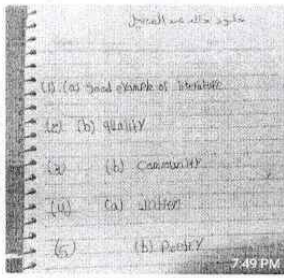 (1) (a) good example of literature
(2) (b) quality
(3) (b) Community
(4) (a) written
(5) (b) Poetry
7:49 PM